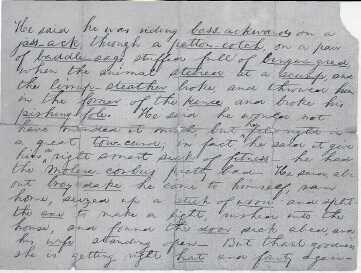 He said he was riding bass ackwards on a
jass-ack, through a patton-cotch, on a pair
of baddle-sags, stuffed full of bingerzreed
when the animal steered at a scump, and
the lirrup-steather broke, and throwed him
in the forner of the kence and broke his
pishing fole. He said he would not
have minded it much, but fel right in
a great tow curd; in fact he said it give
him right smart sick of fitness - he had
the molera corbus pretty bad. He said, ab-
out bray dake he came to himself, ran
home, seized up a stick of wood and split
the axe to make a light, rushed into the
house, and found the door sick abed, and
his wife standing open. But thank goodness
she is getting right hat and farty again -